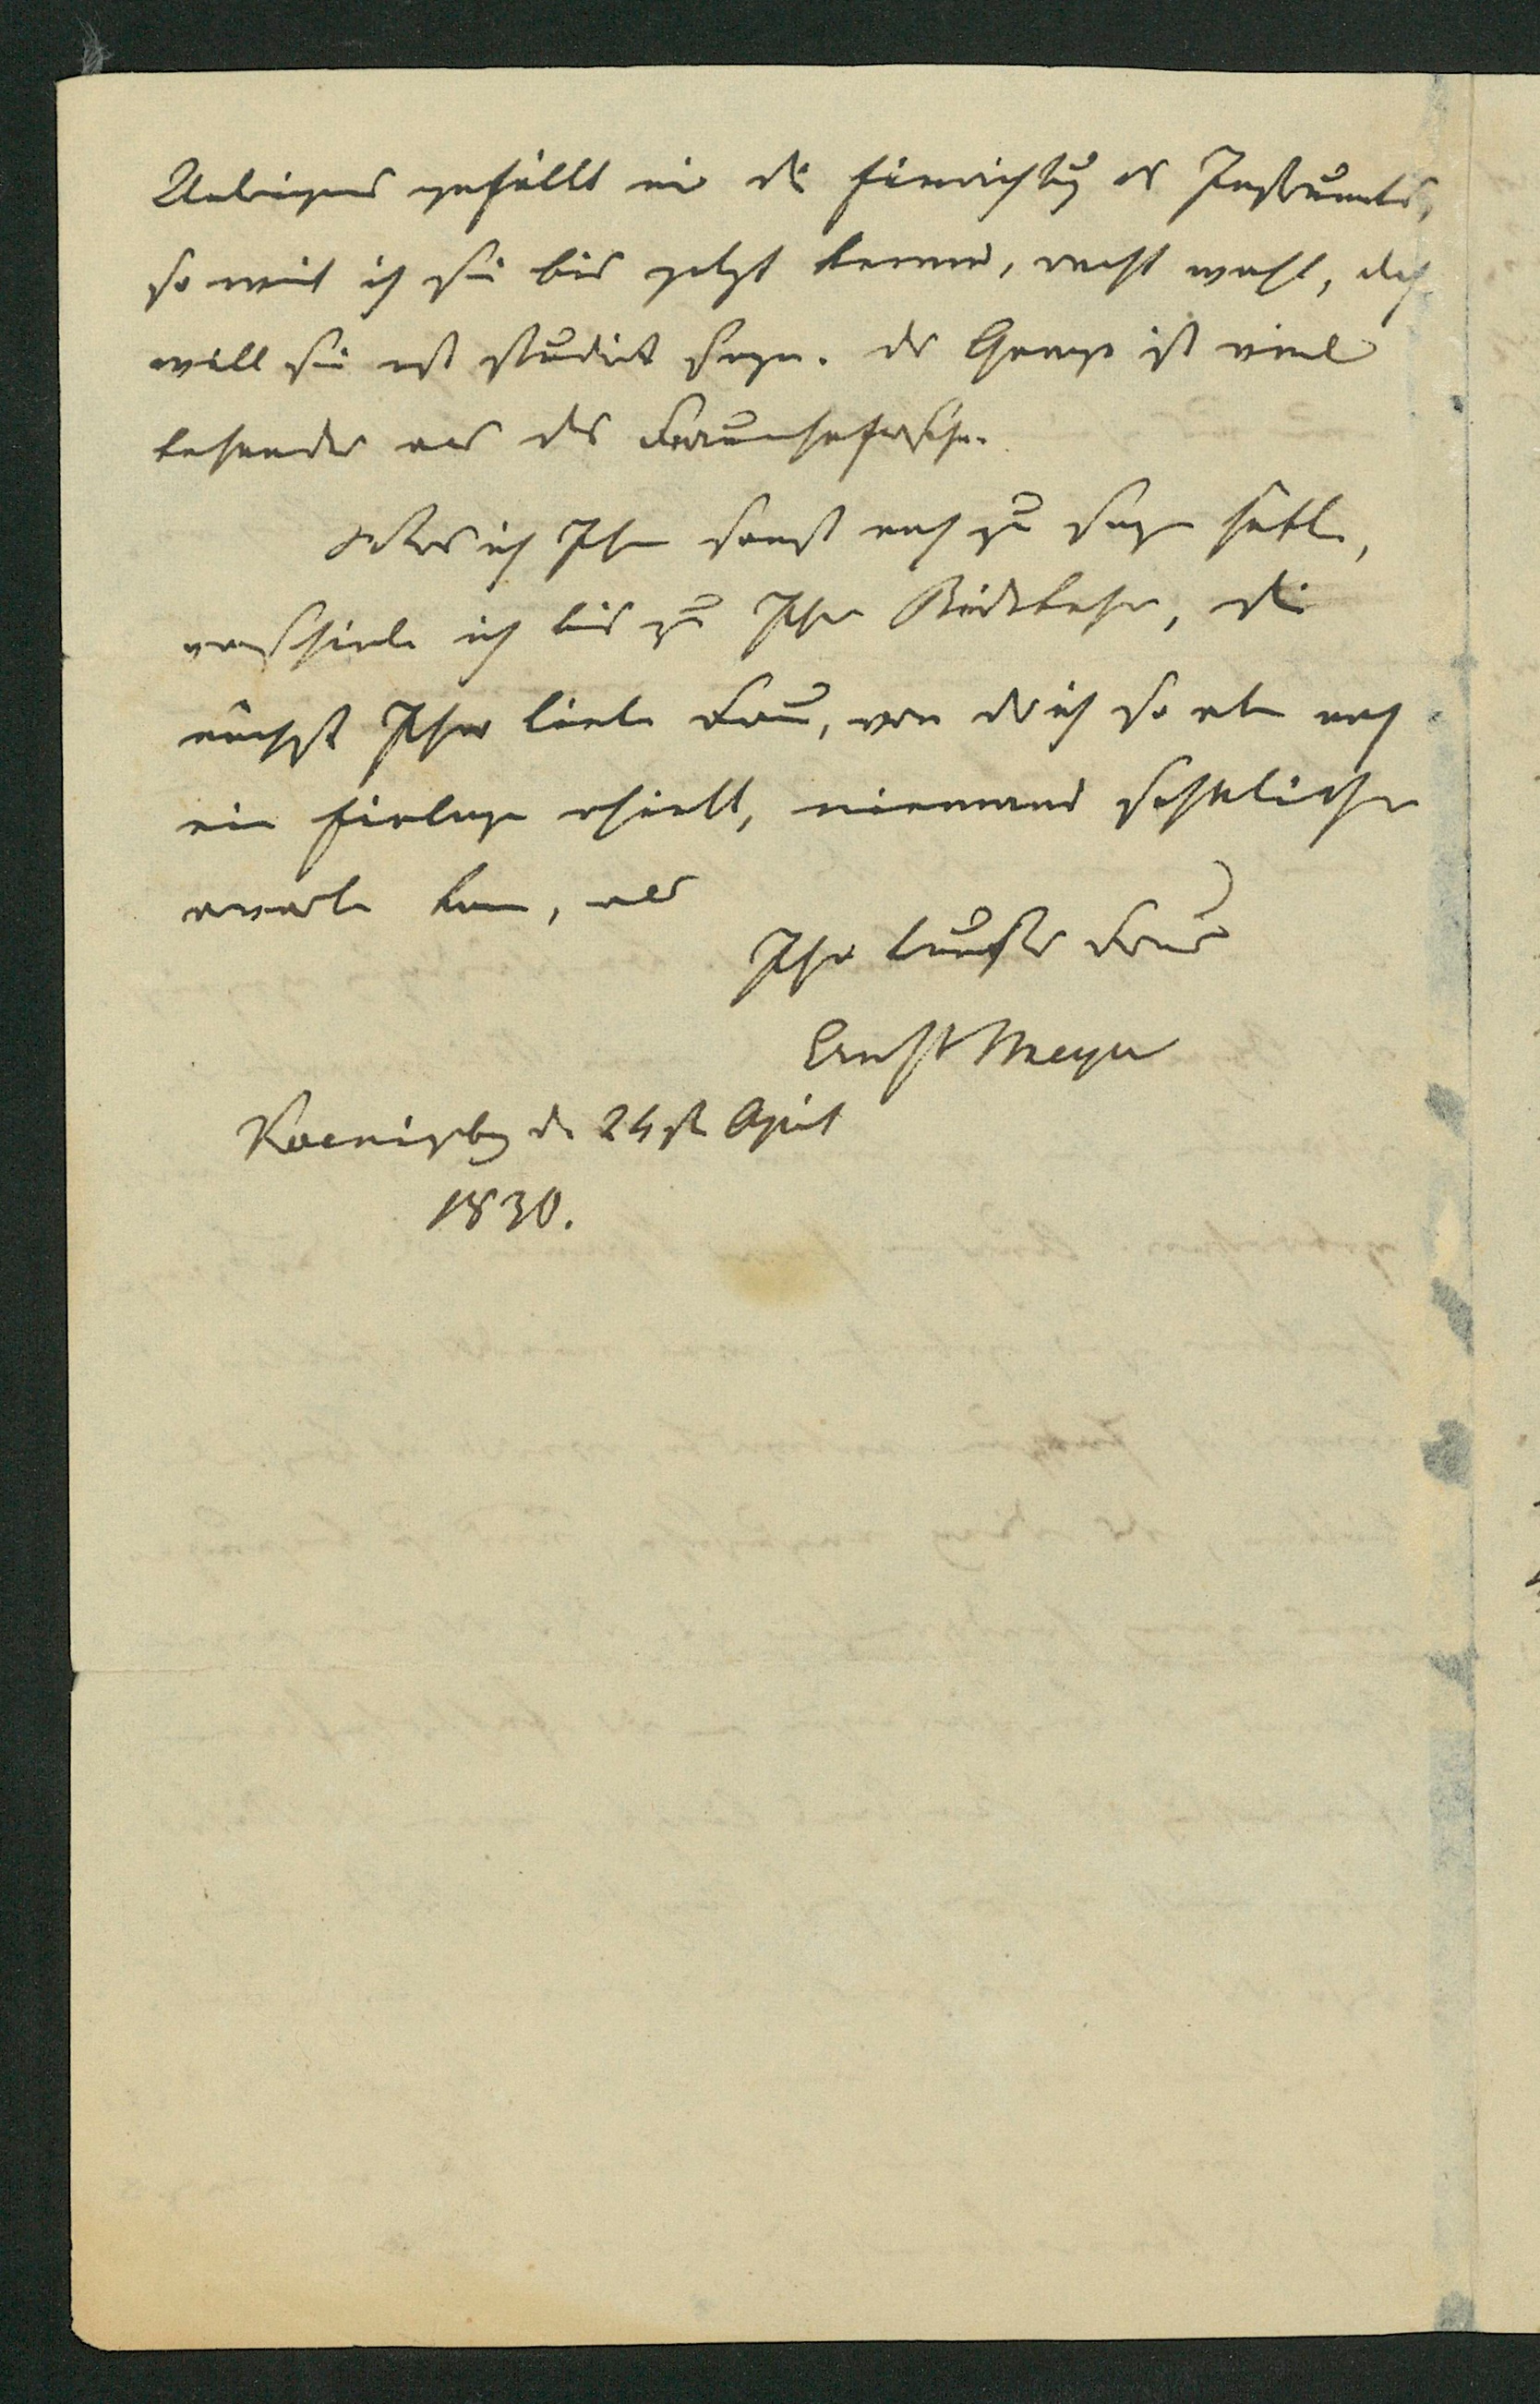 Uebrigens gefällt mir die Einrichtung des Instruments,
so weit ich sie bis jetzt kenne, recht wohl, doch
will sie erst studirt seyn. Das Ganze ist viel
behender als das Fraunhofersche.
Was ich Ihnen sonst noch zu sagen hätte,
verschiebe ich bis zu Ihrer Rückkehr, die
nächst Ihrer lieben Frau, von der ich so eben noch
eine Einlage erhielt, niemand sehnlicher
erwarten kann, als
Ihr Freund
Ernst Meyer
Koenigsberg den 24sten April
1830.